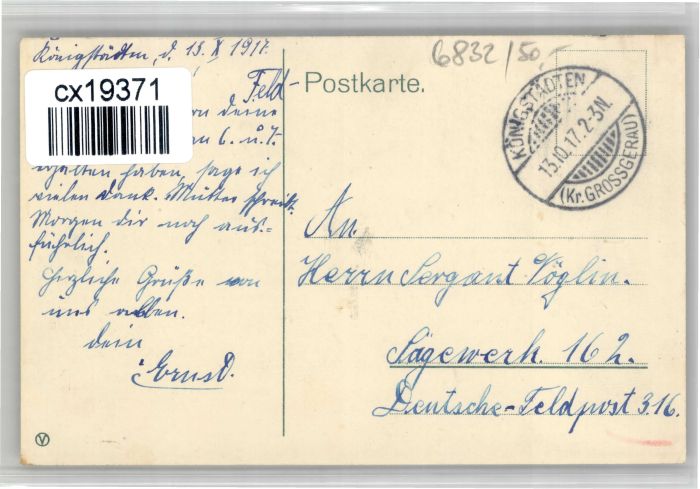 Königstädten, d. 13. X 1917.
6832/50,-
cx19371
Feld-Postkarte.
deine
6. u. 7.
erhalten haben, sage ich
vielen Dank. Mutter schreibt
Morgen dir noch aus-
führlich.
Herzliche Grüße von
uns allen.
Dein
Ernst.
KÖNIGSTÄDTEN
13.10.17. 2-3N.
(Kr. GROSSGERAU)
An.
Herrn Sergant Vöglin.
Sägewerk. 162.
Deutsche-Feldpost 316.
V